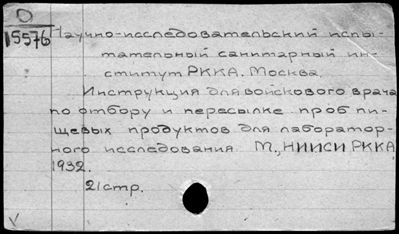 D
15576
Научно-исследовательский испы-
тательный санитарный ин-
ститут РККА. Москва.
Инструкция для войскового врача
по отбору и пересылке проб пи-
щевых продуктов для лаборатор-
ного исследования. М., НИИСИ РККА
1932.
21стр.
V